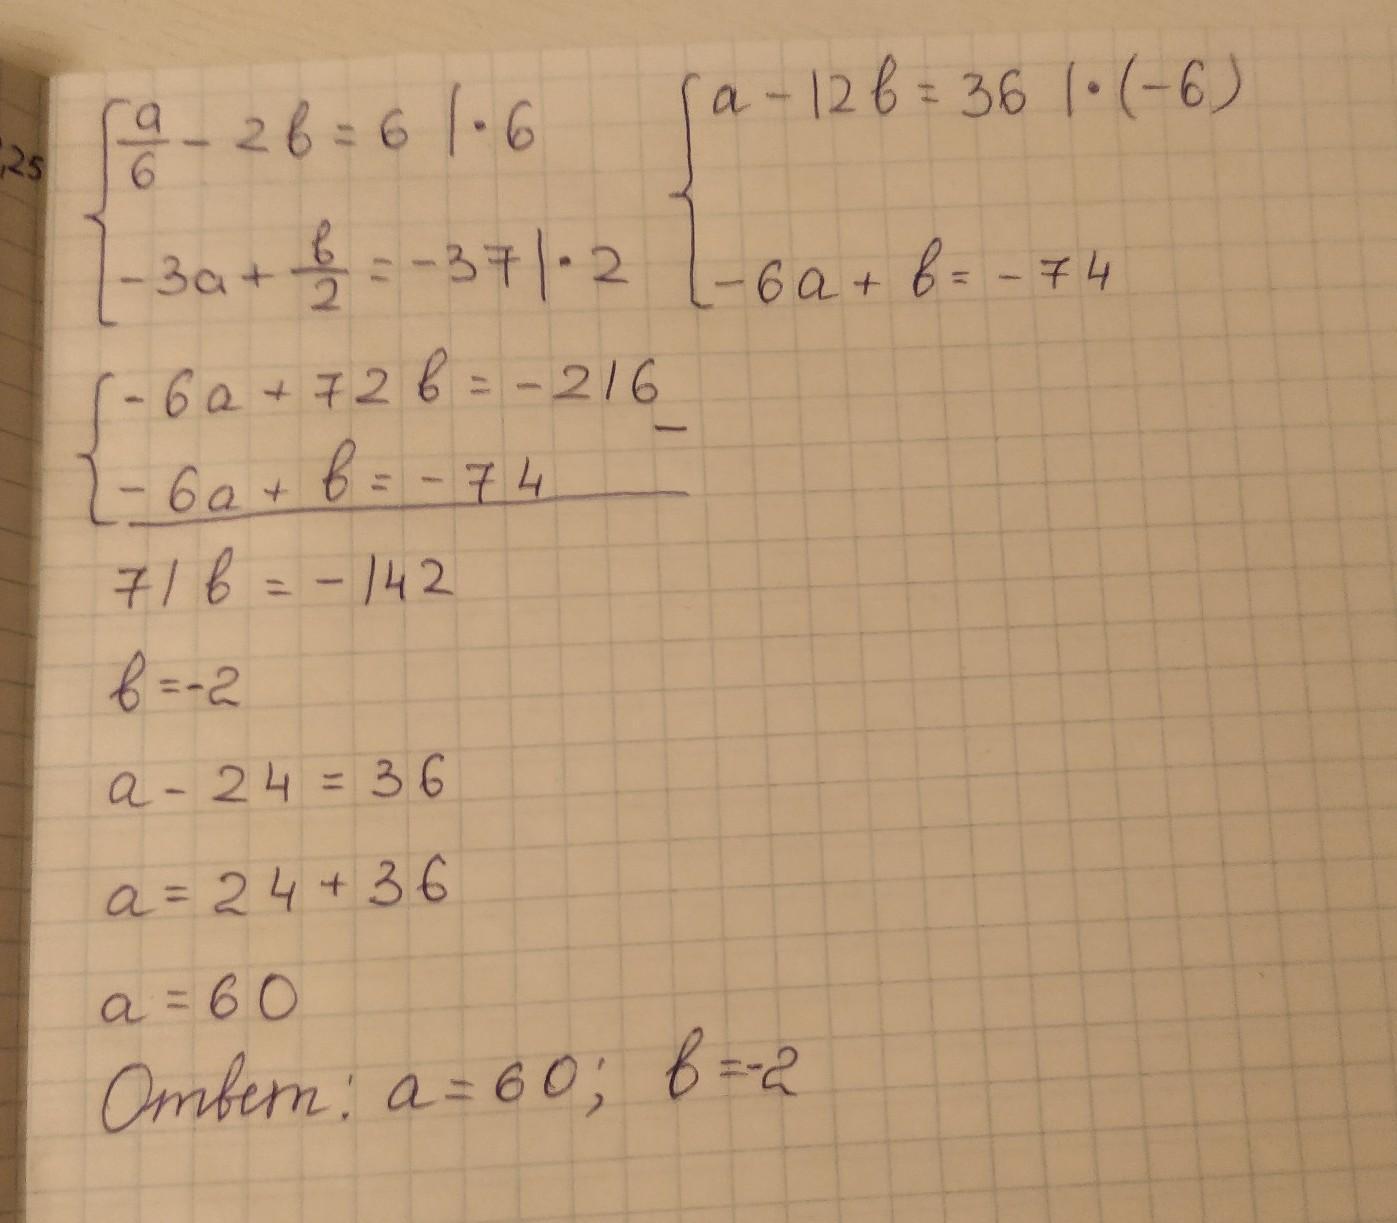 ,25
a/6 - 2в = 6 | · 6
-3a + в/2 = -37 | · 2
a - 12в = 36 | · (-6)
-6a + в = -74
-6a + 72в = -216
-
-6a + в = -74
71в = -142
в = -2
a - 24 = 36
a = 24 + 36
a = 60
Ответ: a = 60; в = -2